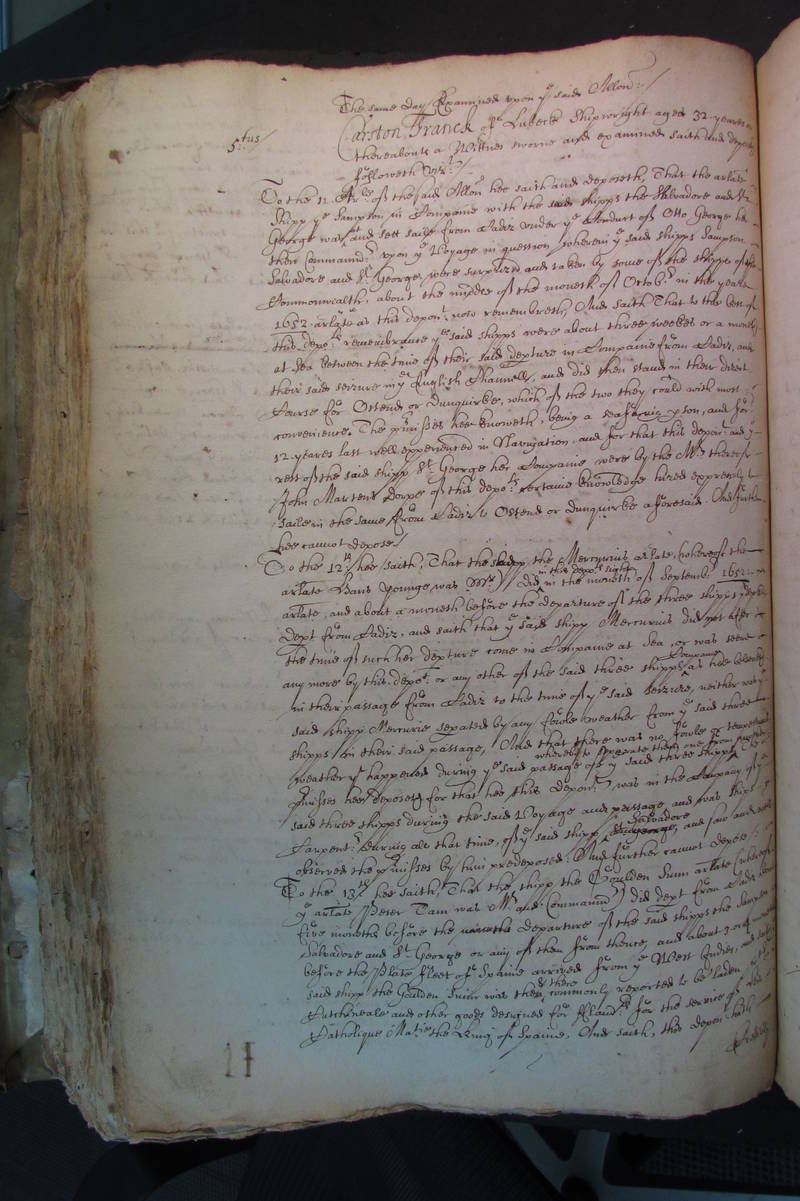 The same day Examined upon ye said Allon:
5.tus
Carston Franck of Lubeck Shipwright aged 32 yeares or
thereabouts a Wittnes sworne and examined saith and deposeth
followeth vizt:
To the 11. Arle of the said Allon hee saith and deposeth, That the arlate
shipp ye Sampson, in Companie with the said shipps the Salvadore and St
George was and sett saile from Cadiz vnder ye Conduct of Otto George
their Commandr vpon ye Voyage in question wherein ye said shipps Sampson
Salvadore and St George, were surprized and taken by some of the shipps of
Commonwealth, about the middle of the moneth of Octobr in the yeare
1652 arlate as this depont now remembreth, And saith That to the best of
this depots remembrance ye said shipps were about three weekes or a moneth
at sea between the time of their said depture in Companie from Cadiz, and
their said seizure in ye English Channell, and did then stand in their direct
Course for Ostend or Dunquirke, which of the two they could with most
convenience. The pmisses hee knoweth, being a seafaring pson, and for
12. yeares last well experienced in Navigation, and for that this depot and ye
rest of the said shipp St George her Companie were by the Mr thereof
John Martens Dorpe of this depots certaine knowledge hired expressely to
saile in the same from Cadiz to Ostend or Dunquirke aforesaid. And further
hee cannot depose./
To the 12th hee saith, That the shipp the Mercurius arlate, (whereof the
arlate Hans Younge was Mr) did in this depots sight in the moneth of Septembr 1652
arlate, and about a moneth before the departure of the three shipps
dept from Cadiz, and saith that ye said shipp Mercurius did not after
the time of such her depture come in Companie at sea, or was seene
any more by this depot: or any other of the said three shipps Companie as hee beleeveth
in their passage from Cadiz to the time of ye said seizure, neither was ye
said shipp Mercurie sepated by any fowle weather from ye said three
shipps in their said passage, And that there was no fowle or tempestuous
weather yt happened during ye said passage whereby to seperate them one from another of ye said three shipps
pmisses hee deposeth for that hee this depont was in the Company of ye
said three shipps during the said Voyage and passage and was shipp
Carpentr during all that time, of ye said shipp St George, Salvadore and saw and
observed the pmisses by him predeposed: And further cannot depose:
To the 13th hee saith, That the shipp the Goulden Sunn arlate (whereof
ye arlate Peter Tam was Mr and Commandr) did dept from Cadiz
five moneths before the departure of the said shipps the Sampson
Salvadore and St George or any of them from thence, and about 3. or 4 moneths
before the Plate fleet of Spaine arrived from ye West Indies, and
said shipp the Goulden Sunn was then & there commonly reported to be laden
Cutchineale and other goods designed for Flandrs for the service of his
Catholique Matie the King of Spaine, And saith, this depont hath